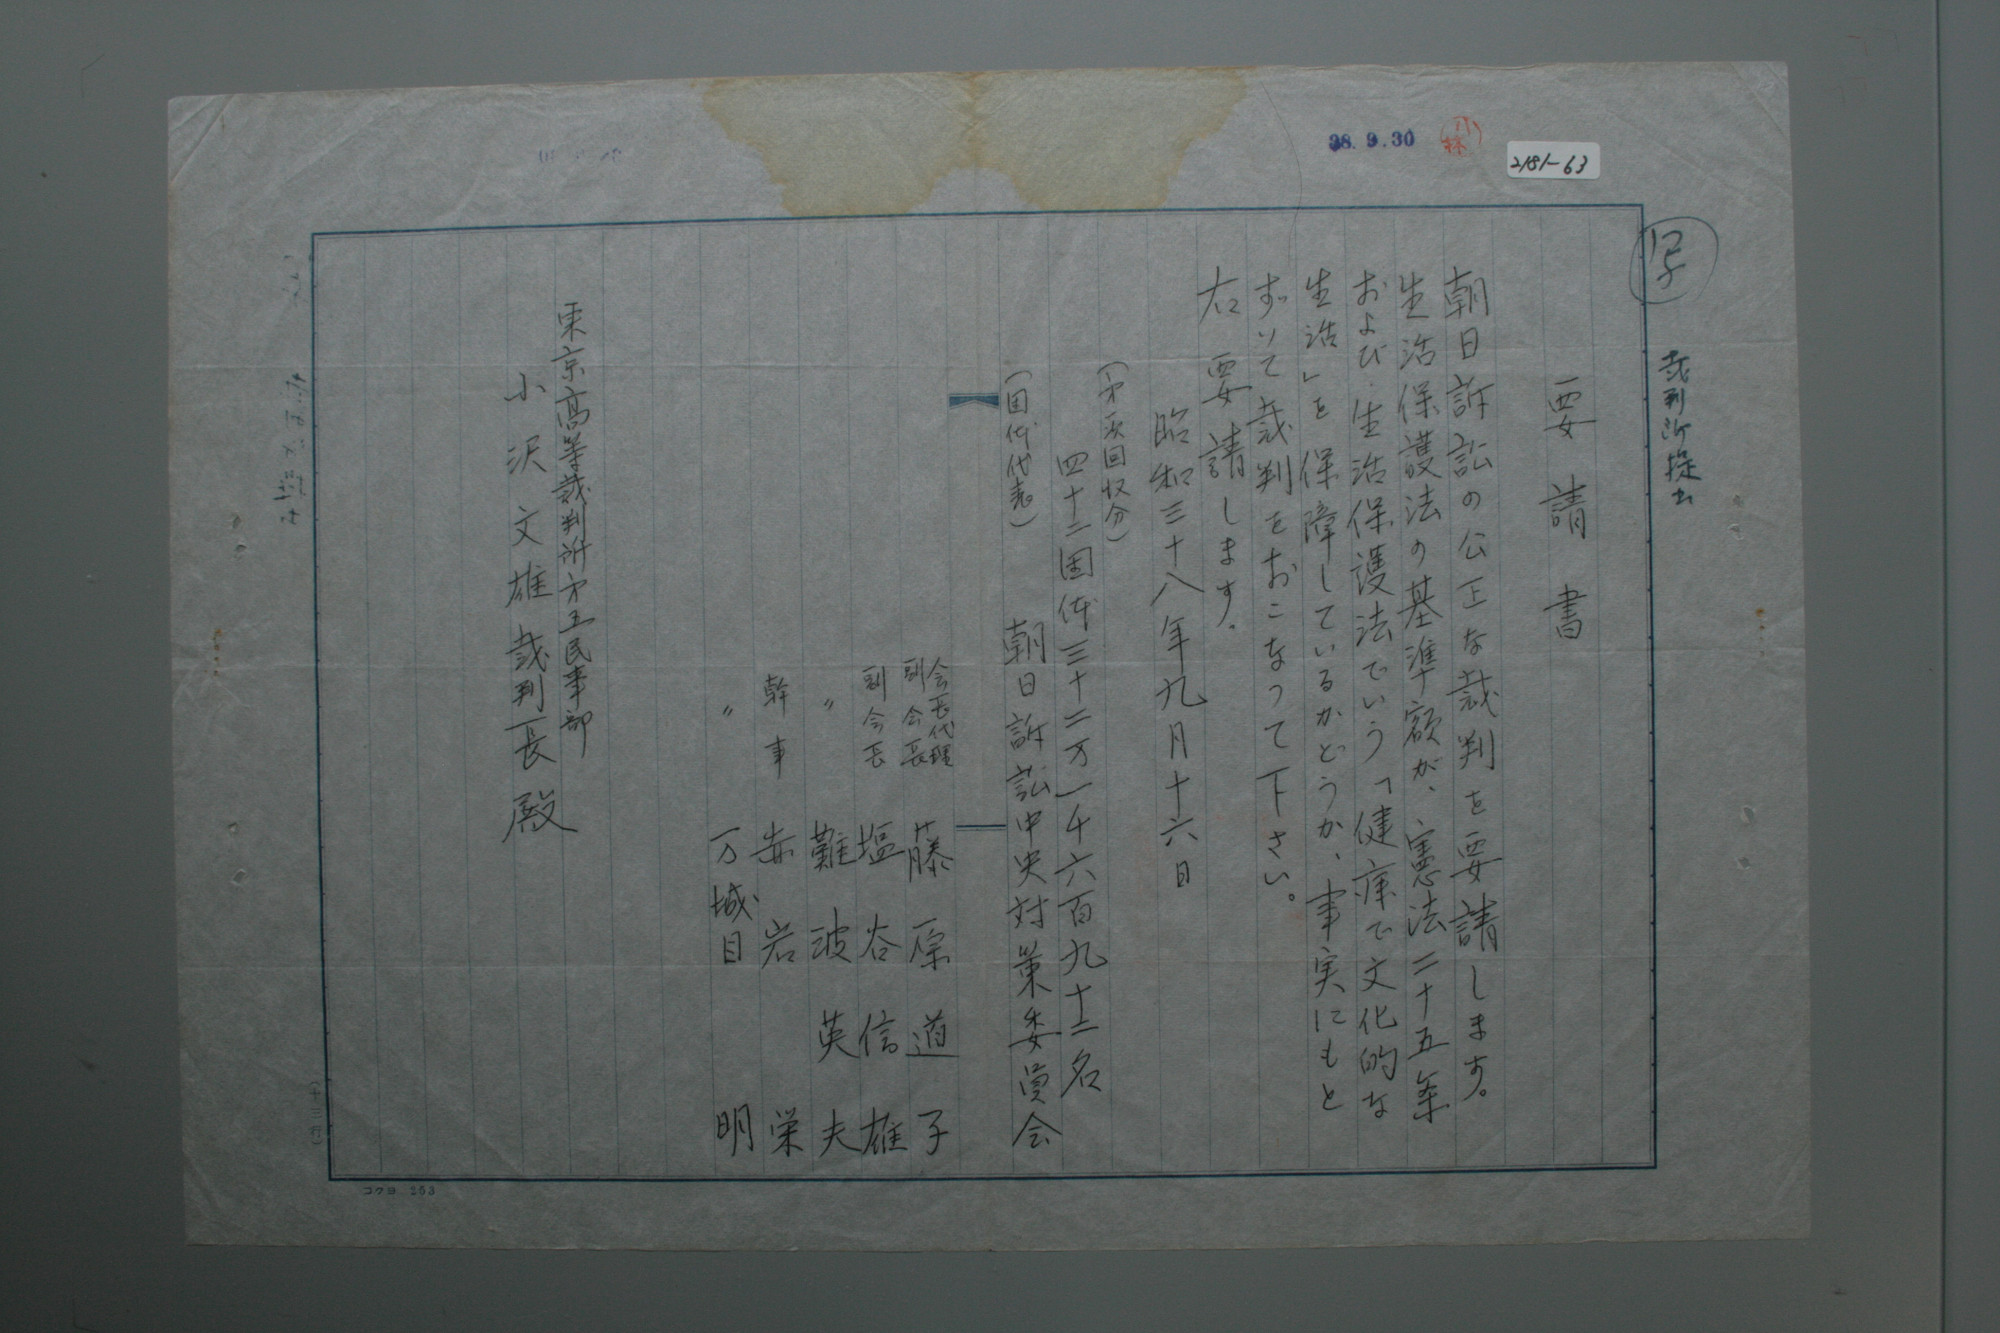 38.9.30
小林
2181-63
写
裁判所提出
要請書
朝日訴訟の公正な裁判を要請します。
生活保護法の基準額が、憲法二十五条
および生活保護法でいう「健康で文化的な
生活」を保障しているかどうか、事実にもと
ずいて裁判をおこなって下さい。
右 要請します。
昭和三十八年九月十六日
(才一次回収分)
四十二団体三十二万一千六百九十二名
(団体代表) 朝日訴訟中央対策委員会
会長代理
副会長 藤原道子
副会長 塩谷信雄
〃 難波英夫
幹事 赤岩栄
〃 万城目明
東京高等裁判所才五民事部
小沢文雄裁判長殿
(十三行)
コクヨ 263